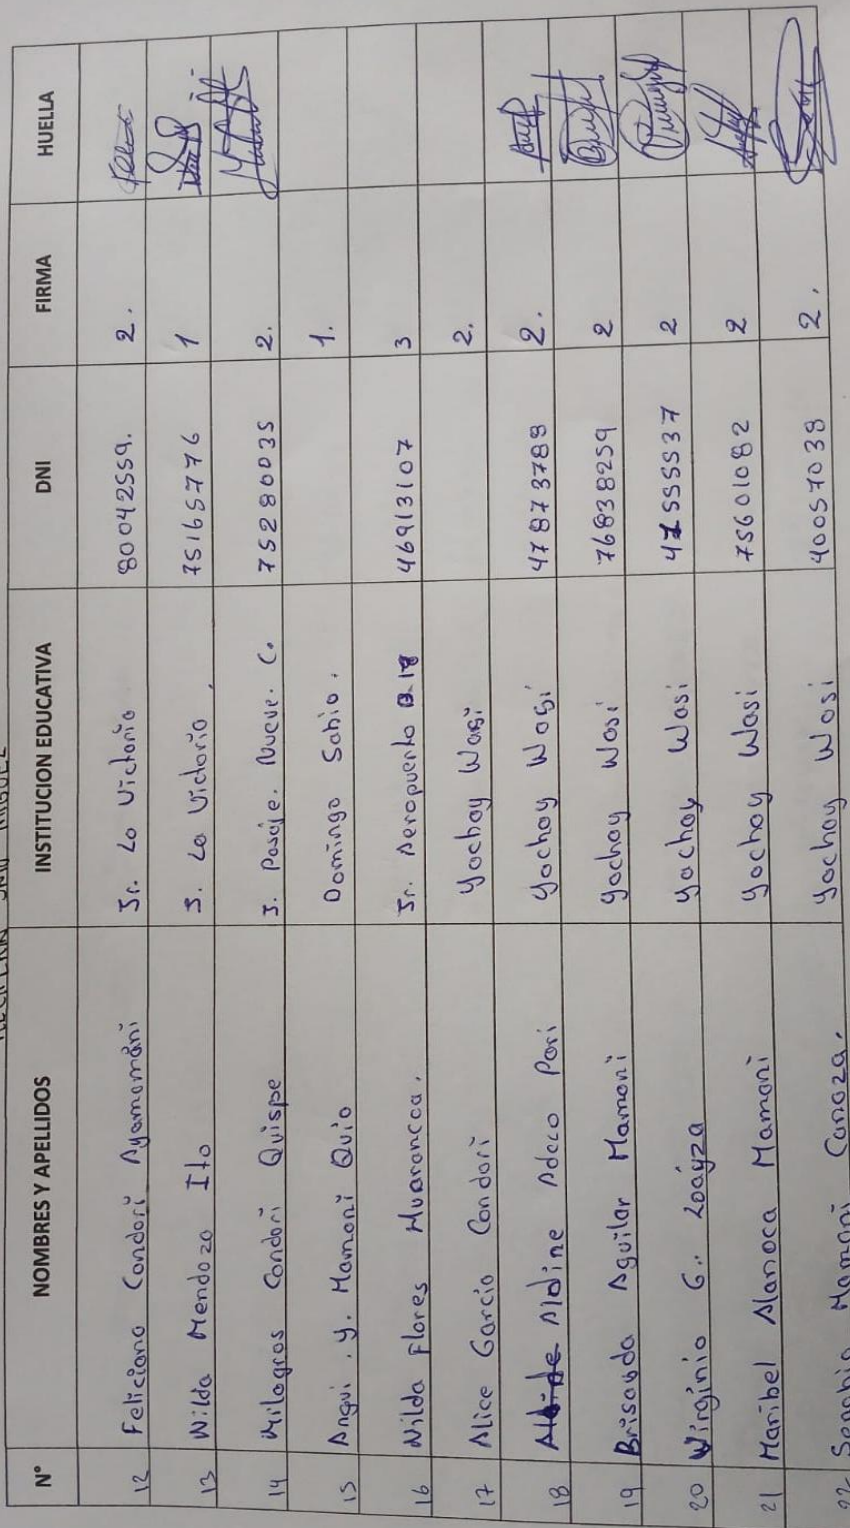 SAN MIGUEL
N° NOMBRES Y APELLIDOS INSTITUCION EDUCATIVA DNI FIRMA HUELLA
12 Feliciano Condori Ayamamani Jr. La Victoria 80042559. 2.
13 Wilda Mendozo Ito J. La Victoria. 75165776 1
14 Milagros Condori Quispe J. Pasaje. Nueve. C. 75280035 2.
15 Angui. y. Mamani Quio Domingo Sabio. 1.
16 Nilda Flores Huarancca. Jr. Aeropuerto 46913107 3
17 Alice Garcia Condori Yachay Wasi 2.
18 Aldine Adeco Pari Yachay Wasi 47873789 2.
19 Brisayda Aguilar Mamani Yachay Wasi 76838259 2
20 Virginia G.. Loayza Yachay Wasi 2
21 Maribel Alanoca Mamani Yachay Wasi 75601082 2
22 Mamani Canaza. Yachay Wasi 40057038 2.